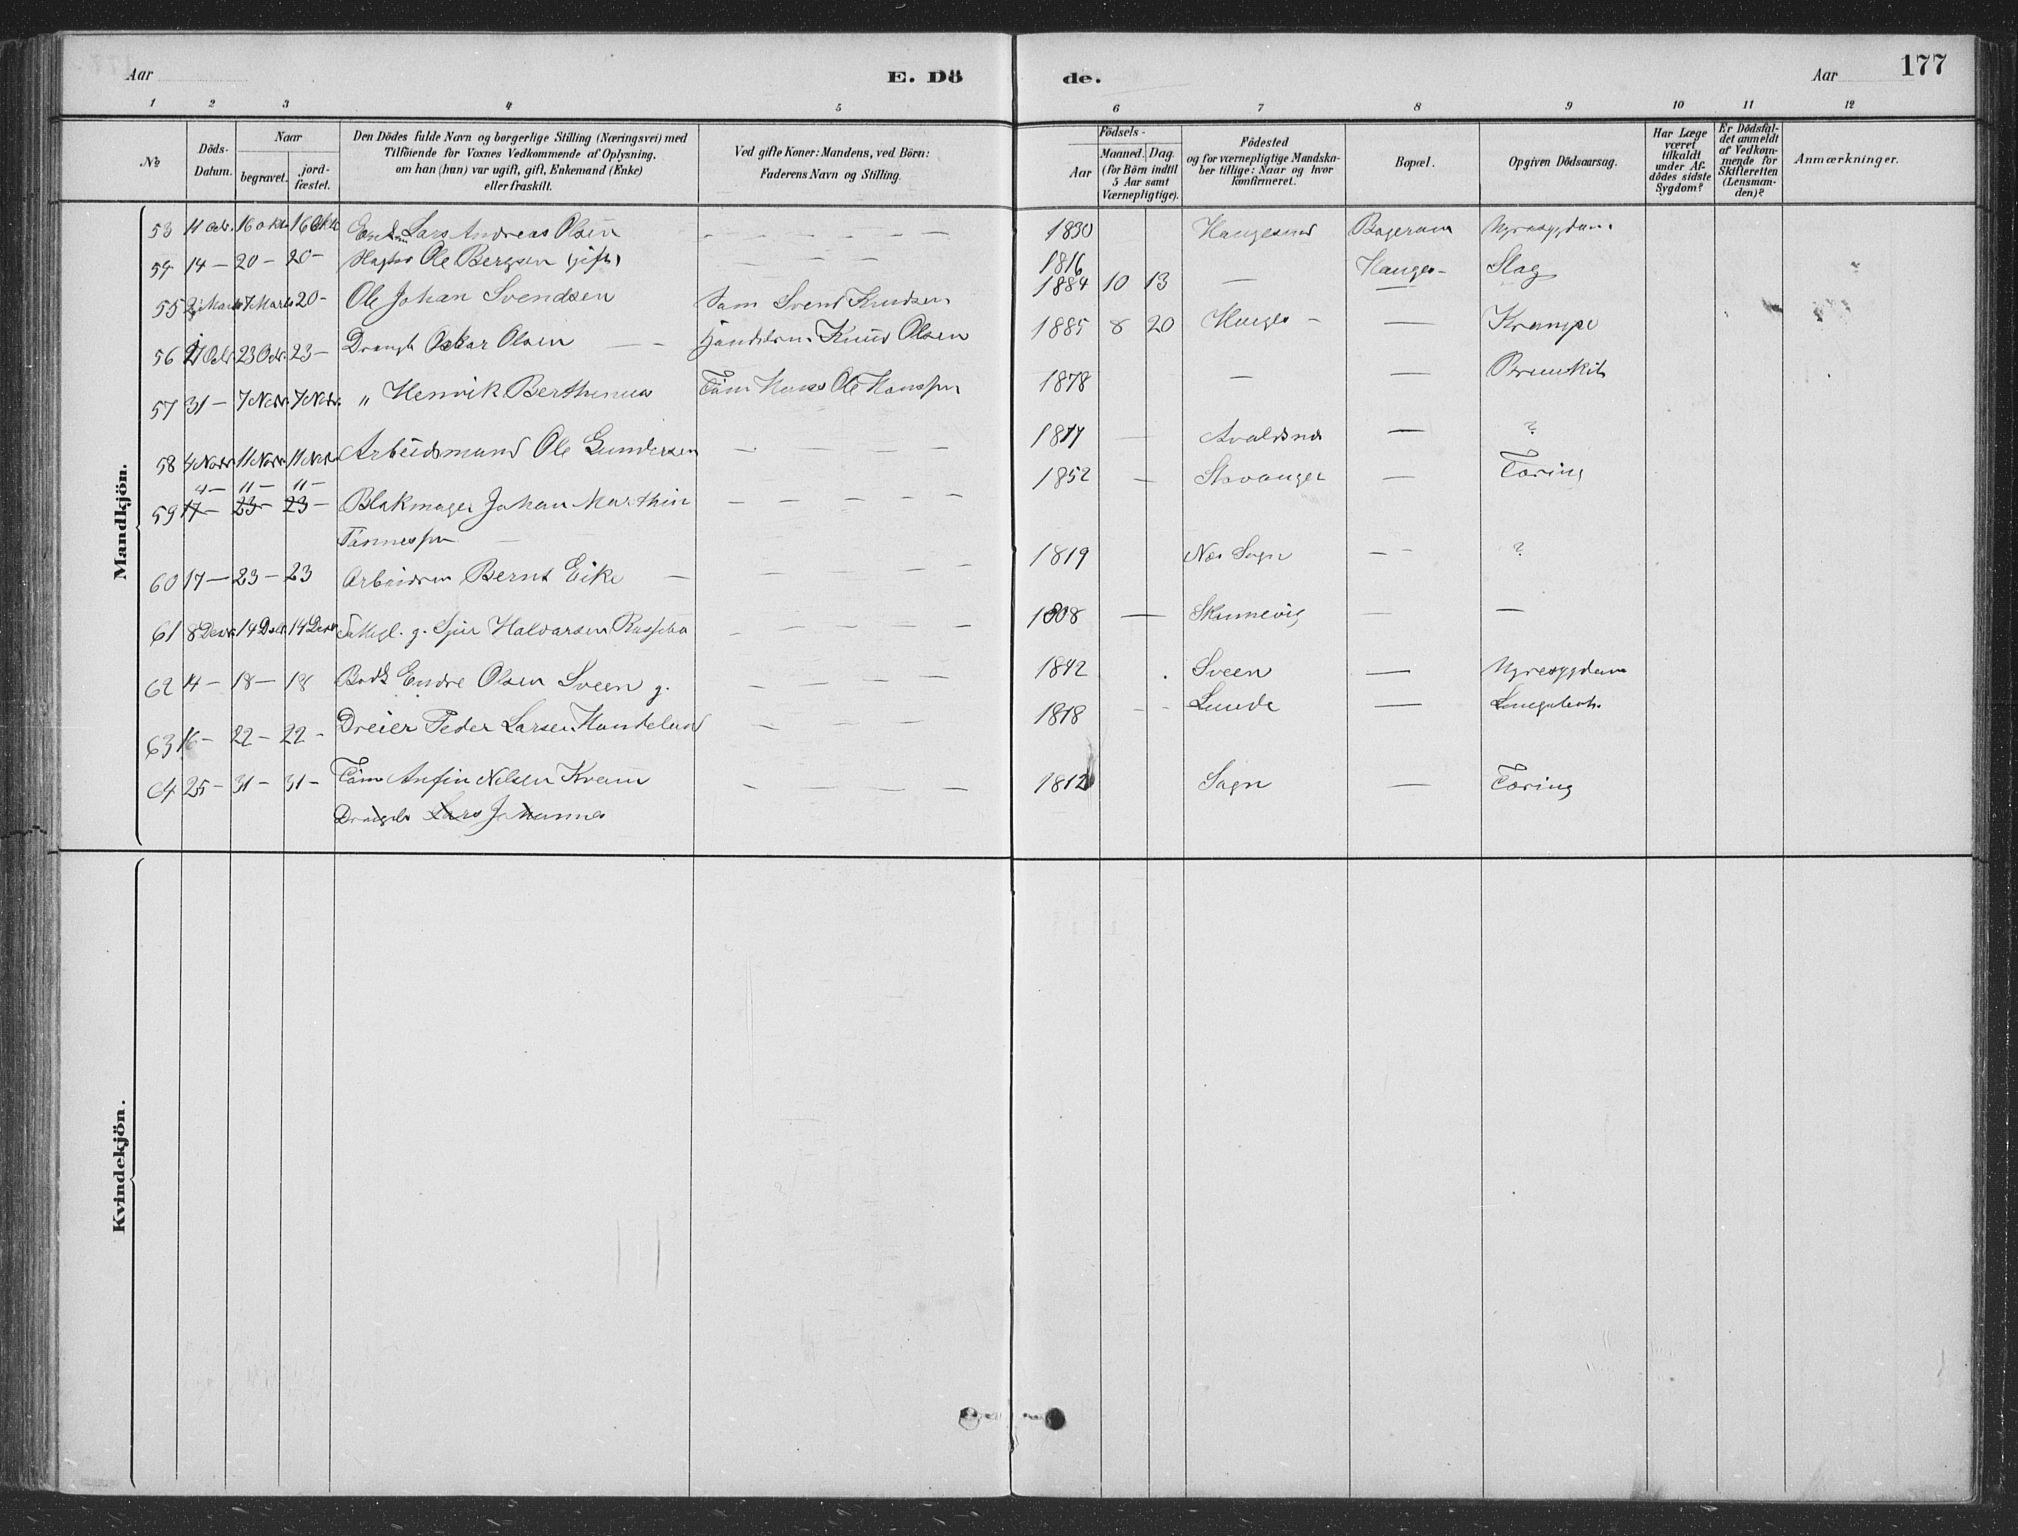 Aar
E. Dö
de.
Aar
177
1 2 3 4 5 6 7 8 9 10 11 12
No
Döds-
Datum.
Naar
begravet.
jord-
fæstet.
Den Dödes fulde Navn og borgerlige Stilling (Næringsvei) med
Tilföiende for Voxnes Vedkommende af Oplysning,
om han (hun) var ugift, gift, Enkemand (Enke)
eller fraskilt.
Ved gifte Koner: Mandens, ved Börn:
Faderens Navn og Stilling.
Födsels-
Aar
Maaned. Dag.
(for Börn indtil
5 Aar samt
Værnepligtige).
Födested
og for værnepligtige Mandska-
ber tillige: Naar og hvor
konfirmeret.
Bopæl.
Opgiven Dödsaarsag.
Har Læge
været
tilkaldt
under Af-
dödes sidste
Sygdom?
Er Dödsfal-
det anmeldt
af Vedkom-
mende for
Skifteretten
(Lensman-
den)?
Anmærkninger.
Mandkjön.
53 11 Octr. 16 Okt. 16 Okt. Lars Andreas Olsen — — — — — 1830 Haugesund
54 14 — 20 — 20 — Ole Bergsen (gift) — — — — 1816 — Hauges — Slag
55 7 Marts 20 — Ole Johan Svendsen Svend Knudsen 1884 10 13 — —
56 21 Octr. 23 Octr. 23 — Drengb Oskar Olsen — — Knud Olsen 1885 8 20 Hauges — — Krampe
57 31 — 7 Novbr. 7 Novbr. „ Henrik Berthinus Ole Hanssen 1878 — —
58 4 Novbr. 11 Novbr. 11 Novbr. Arbeidsmand Ole Gundersen — — — — 1817 — Avaldsnes — ?
4 — 11 — 11 —
59 17 — 23 — 23 — Blokmager Johan Marthin — — — — — 1852 — Stavanger — Tæring
Tönnessen
60 17 — 23 — 23 Bernt Eike — — — — — 1819 Næs Sogn — — ?
61 8 Decbr. 14 Decbr. 14 Decbr. g. Halvarsen — — — — — 1808 — Skonnevig — —
62 14 — 18 — 18 Endre Olsen Sveen g. — — — — 1842 Sveen —
63 16 — 22 — 22 — Dreier Peder Larsen Handeland — 1818 — — Lunde —
64 25 — 31 — 31 — Anfin Nilsen — — — — 1812 Sogn — Tæring
Lars Johannes
Kvindekjön.